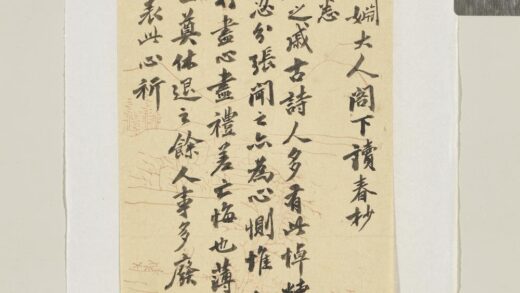 婣大人閣下讀春杪
之戚古詩人多有此悼
忽分張聞之亦為心惻惟
盡心盡禮差亡悔也薄
奠休退之餘人事多廢
表此心祈